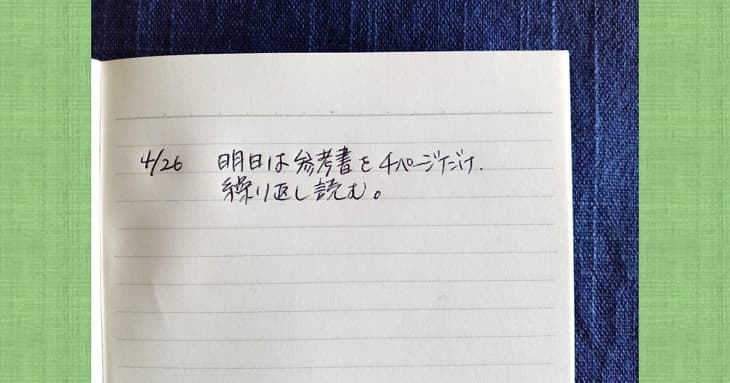 4/26 明日は参考書を4ページだけ、
繰り返し読む。